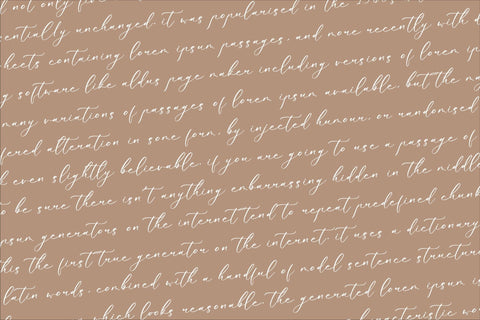 not only five
entially unchanged. it was popularised in the 1960s
heets containing lorem ipsum passages, and more recently with d
g software like aldus page maker including versions of lorem
many variations of passages of lorem ipsum available, but the ma
fered alteration in some form, by injected humour, or randomised
d even slightly believable. if you are going to use a passage of
o be sure there isn't anything embarrassing hidden in the middle
ipsum generators on the internet tend to repeat predefined chunk
this the first true generator on the internet. it uses a dictionary
latin words, combined with a handful of model sentence structure
which looks reasonable. the generated lorem ipsum is
characteristic wor